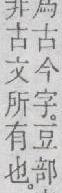 爲古今字。豆部
非古文所有也。